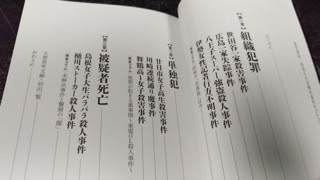 【第一章】
組織犯罪
世田谷一家殺害事件
広島一家失踪事件
八王子スーパー強盗殺人事件
伊勢女性記者行方不明事件
【第二章】
単独犯
廿日市女子高生殺害事件
川崎連続通り魔事件
舞鶴高1女子殺害事件
【第三章】
被疑者死亡
島根女子大生バラバラ殺人事件
桶川ストーカー殺人事件